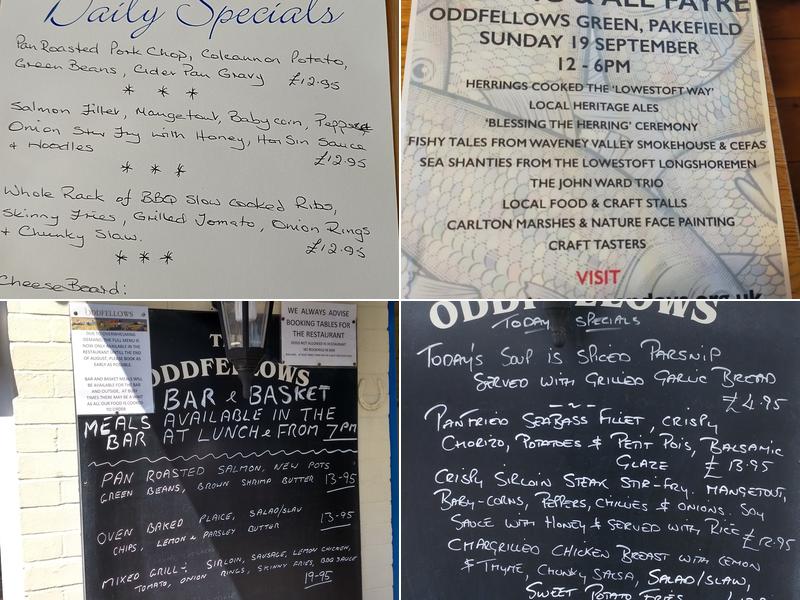 Daily Specials
Pan Roasted Pork Chop, Colcannon Potato,
Green Beans, Cider Pan Gravy £12.95
* * *
Salmon Fillet, Mangetout, Babycorn, Pepper
Onion Stir Fry with Honey, Hoi Sin Sauce
+ Noodles £12.95
* * *
Whole Rack of BBQ Slow Cooked Ribs,
Skinny Fries, Grilled Tomato, Onion Rings
+ Chunky Slaw. £12.95
* * *
Cheese Board:
& ALE FAYRE
ODDFELLOWS GREEN, PAKEFIELD
SUNDAY 19 SEPTEMBER
12 - 6PM
HERRINGS COOKED THE 'LOWESTOFT WAY'
LOCAL HERITAGE ALES
'BLESSING THE HERRING' CEREMONY
FISHY TALES FROM WAVENEY VALLEY SMOKEHOUSE & CEFAS
SEA SHANTIES FROM THE LOWESTOFT LONGSHOREMEN
THE JOHN WARD TRIO
LOCAL FOOD & CRAFT STALLS
CARLTON MARSHES & NATURE FACE PAINTING
CRAFT TASTERS
VISIT
ODDFELLOWS
DUE TO OVERWHELMING
DEMAND THE FULL MENU IS
NOW ONLY AVAILABLE IN THE
RESTAURANT UNTILL THE END
OF AUGUST, PLEASE BOOK AS
EARLY AS POSSIBLE.
BAR AND BASKET MEALS WILL
BE AVAILABLE FOR THE BAR
AND OUTSIDE, AT BUSY
TIMES THERE MAY BE A WAIT
AS ALL OUR FOOD IS COOKED
TO ORDER
WE ALWAYS ADVISE
BOOKING TABLES FOR
THE RESTAURANT
ODDFELLOWS
BAR & BASKET
MEALS AVAILABLE IN THE
BAR AT LUNCH & FROM 7PM
PAN ROASTED SALMON, NEW POTS
GREEN BEANS, BROWN SHRIMP BUTTER 13-95
OVEN BAKED PLAICE, SALAD/SLAW
CHIPS, LEMON & PARSLEY BUTTER 13-95
MIXED GRILL:- SIRLOIN, SAUSAGE, LEMON CHICKEN,
TOMATO, ONION RINGS, SKINNY FRIES, BBQ SAUCE
19-95
ODDFELLOWS
TODAY SPECIALS
TODAY'S SOUP IS SPICED PARSNIP
SERVED WITH GRILLED GARLIC BREAD
£4.95
PANFRIED SEABASS FILLET, CRISPY
CHORIZO, POTATOES & PETIT POIS, BALSAMIC
GLAZE £13.95
CRISPY SIRLOIN STEAK STIR-FRY. MANGETOUT,
BABY-CORNS, PEPPERS, CHILLIES & ONIONS. SOY
SAUCE WITH HONEY & SERVED WITH RICE £12.95
CHARGRILLED CHICKEN BREAST WITH LEMON
& THYME, CHUNKY SALSA, SALAD/SLAW,
SWEET POTATO FRIES